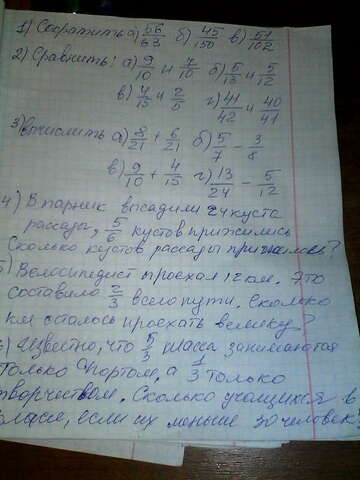 1) Сократить а) 56/63 б) 45/150 в) 51/102
2) Сравнить: а) 9/10 и 7/10 б) 5/13 и 5/12
в) 4/15 и 2/5 г) 41/42 и 40/41
3) Вычислить а) 8/21 + 6/21 б) 5/7 - 3/8
в) 9/10 + 4/15 г) 13/24 - 5/12
4) В парник высадили 24 куста
рассады, 5/6 кустов прижились
Сколько кустов рассады прижилось?
Велосипедист проехал 12 км. Это
составило 2/3 всего пути. Сколько
км осталось проехать велику?
что 5/3 класса занимаются
только спортом, а 1/3 только
творчеством. Сколько учащихся в
классе, если их меньше 30 человек?